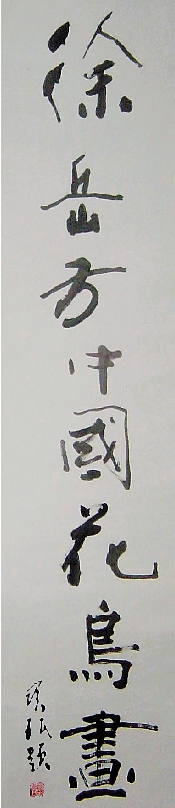 徐岳方中國花鳥畫